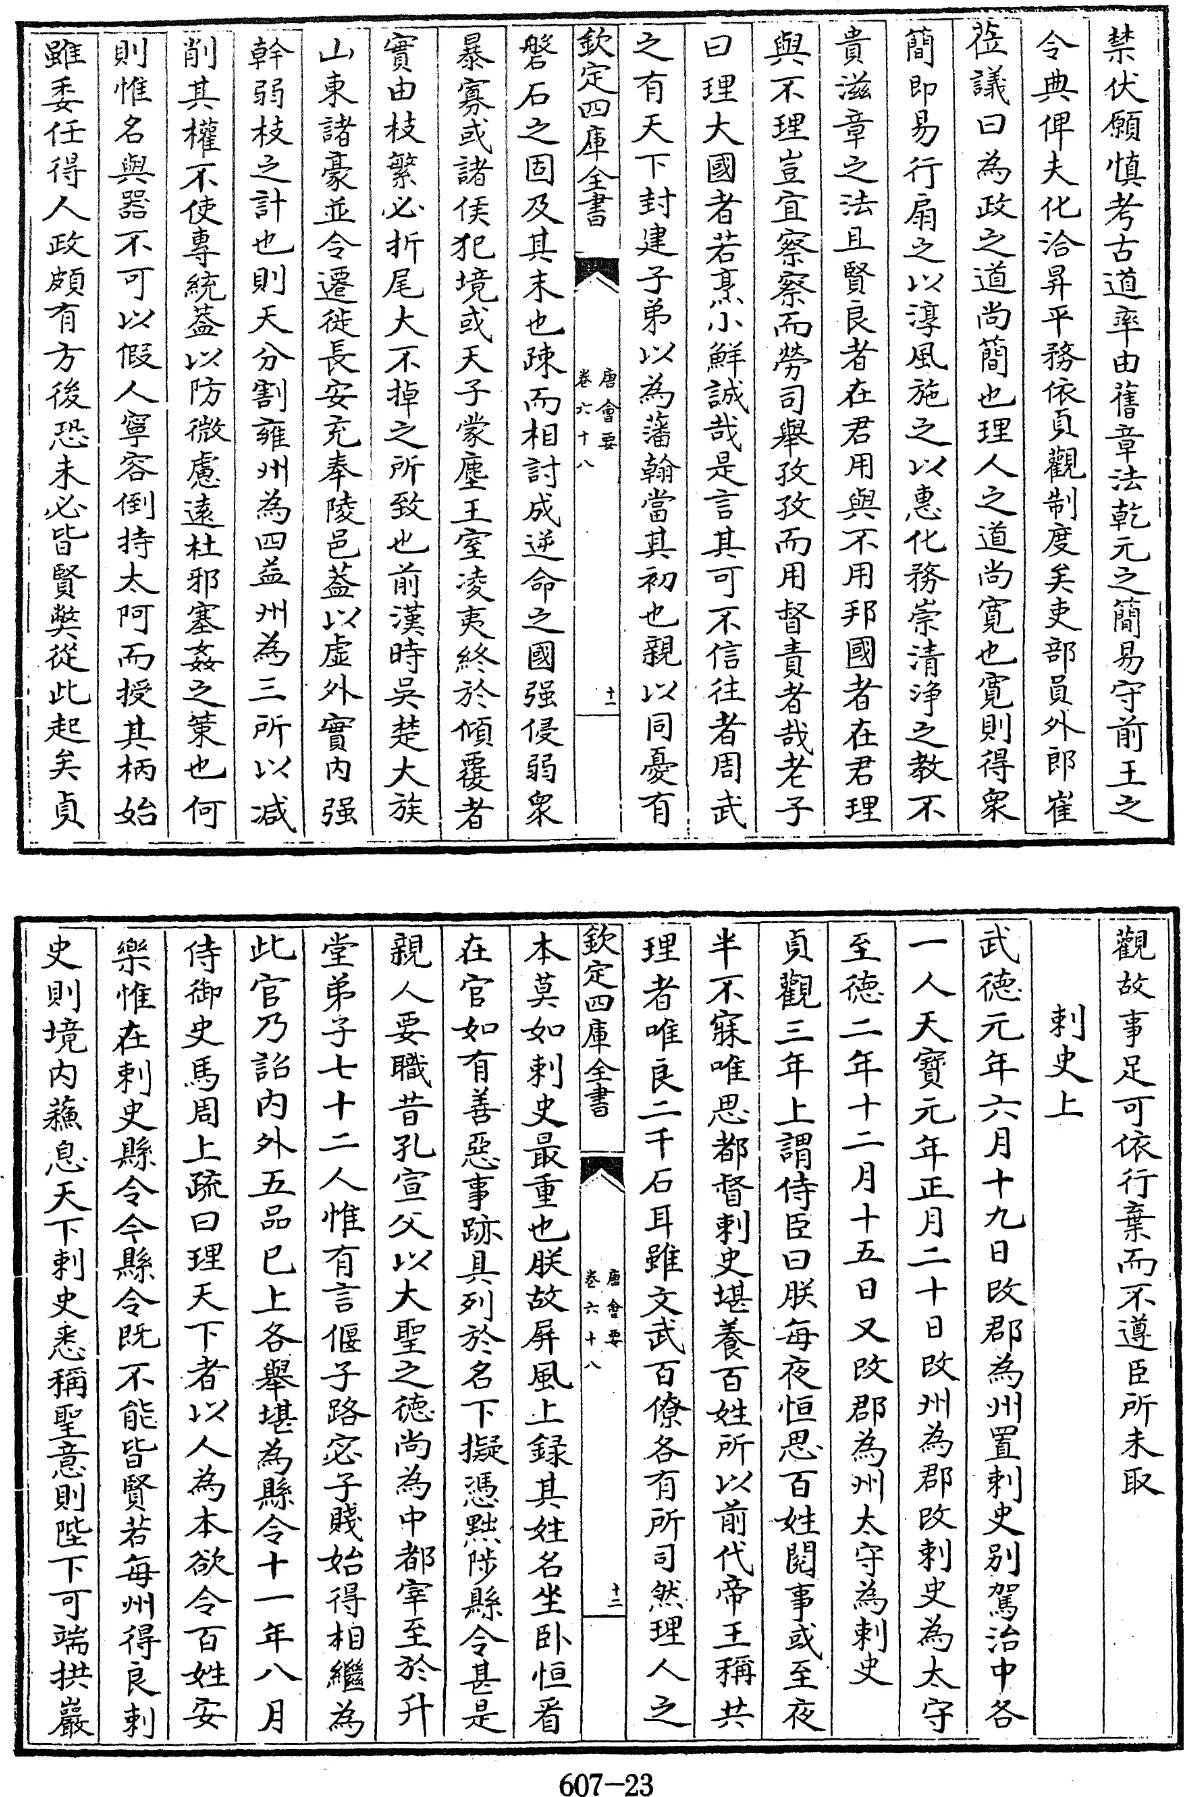 禁伏願慎考古道率由舊章法乾元之簡易守前王之
令典俾夫化洽昇平務依貞觀制度矣吏部員外郎崔
蒞議曰為政之道尚簡也理人之道尚寛也寛則得衆
簡即易行扇之以淳風施之以惠化務崇清浄之教不
貴滋章之法且賢良者在君用與不用邦國者在君理
與不理豈宜察察而勞司舉孜孜而用督責者哉老子
曰理大國者若烹小鮮誠哉是言其可不信往者周武
之有天下封建子弟以為藩翰當其初也親以同憂有
欽定四庫全書
唐會要
卷六十八
十一
磐石之固及其末也疎而相討成逆命之國强侵弱衆
暴寡或諸侯犯境或天子蒙塵王室凌夷終於傾覆者
實由枝繁必折尾大不掉之所致也前漢時吳楚大族
山東諸豪並令遷徙長安充奉陵邑葢以虚外實内强
幹弱枝之計也則天分割雍州為四益州為三所以减
削其權不使專統葢以防微慮遠杜邪塞姦之策也何
則惟名與器不可以假人寧容倒持太阿而授其柄始
雖委任得人政頗有方後恐未必皆賢獘從此起矣貞
觀故事足可依行棄而不遵臣所未取
刺史上
武德元年六月十九日改郡為州置刺史别駕治中各
一人天寶元年正月二十日改州為郡改刺史為太守
至德二年十二月十五日又改郡為州太守為刺史
貞觀三年上謂侍臣曰朕每夜恒思百姓閱事或至夜
半不寐唯思都督刺史堪養百姓所以前代帝王稱共
理者唯良二千石耳雖文武百僚各有所司然理人之
欽定四庫全書
唐會要
卷六十八
十二
本莫如刺史最重也朕故屏風上録其姓名坐卧恒看
在官如有善惡事跡具列於名下擬憑黜陟縣令甚是
親人要職昔孔宣父以大聖之徳尚為中都宰至於升
堂弟子七十二人惟有言偃子路宓子賤始得相繼為
此官乃詔内外五品已上各舉堪為縣令十一年八月
侍御史馬周上疏曰理天下者以人為本欲令百姓安
樂惟在刺史縣令今縣令既不能皆賢若每州得良刺
史則境内蘓息天下刺史悉稱聖意則陛下可端拱巖
607-23